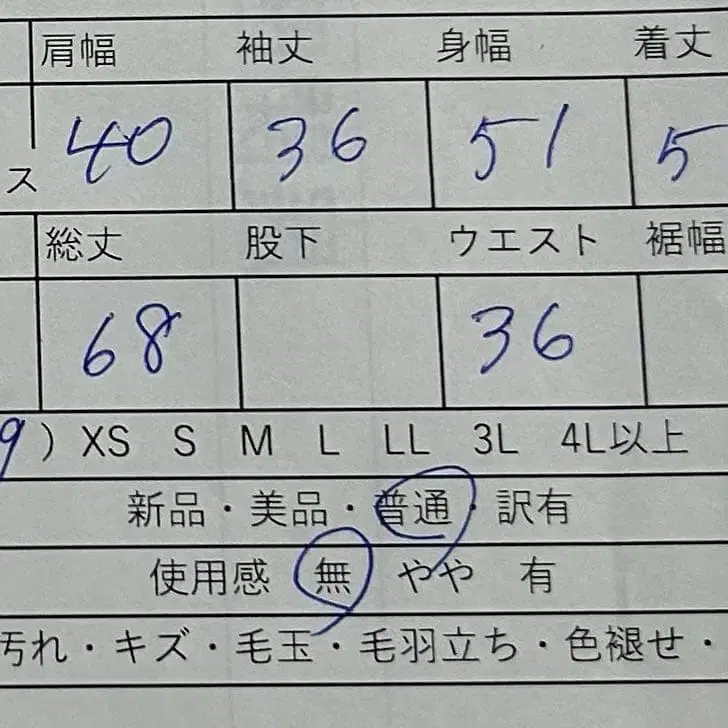 肩幅 袖丈 身幅 着丈
ス 40 36 51 5
総丈 股下 ウエスト 裾幅
68 36
9 ) XS S M L LL 3L 4L以上
新品・美品・普通・訳有
使用感 無 やや 有
汚れ・キズ・毛玉・毛羽立ち・色褪せ・